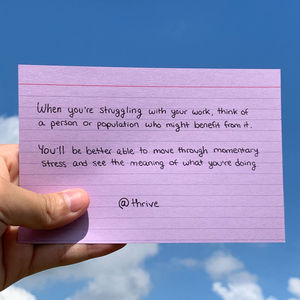 When you're struggling with your work, think of
a person or population who might benefit from it.
You'll be better able to move through momentary
stress and see the meaning of what you're doing.
@thrive